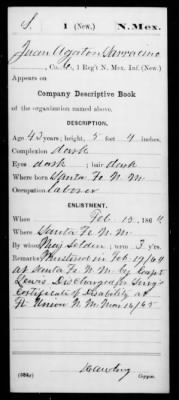 S | 1 (New.) | N. Mex.
Juan Agaton Sarracino
, Co. G, 1 Reg't N. Mex. Inf. (New.)
Appears on
Company Descriptive Book
of the organization named above.
DESCRIPTION.
Age 43 years; height, 5 feet 4 inches.
Complexion dark
Eyes dark ; hair dark
Where born Santa Fe N. M
Occupation laborer
ENLISTMENT.
When Feb 15 , 1864
Where Santa Fe N. M
By Maj Selden ; term 3 y'rs.
Remarks Mustered in Feb 17/64
at Santa Fe N. M. by Capt
Lewis Discharged for Surg's
Certificate of Disability at
Ft Union N. M. Nov 16/65
Copyist.